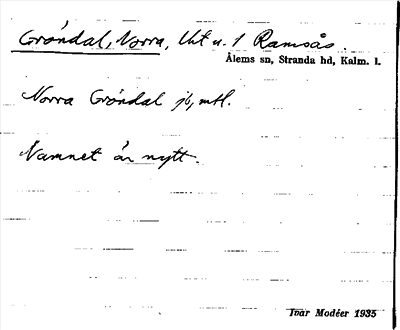 Gröndal, Norra, Uht u. 1 Ramsås.
Ålems sn, Stranda hd, Kalm. l.
Norra Gröndal jb, mtl.
Namnet är nytt.
Ivar Modéer 1935